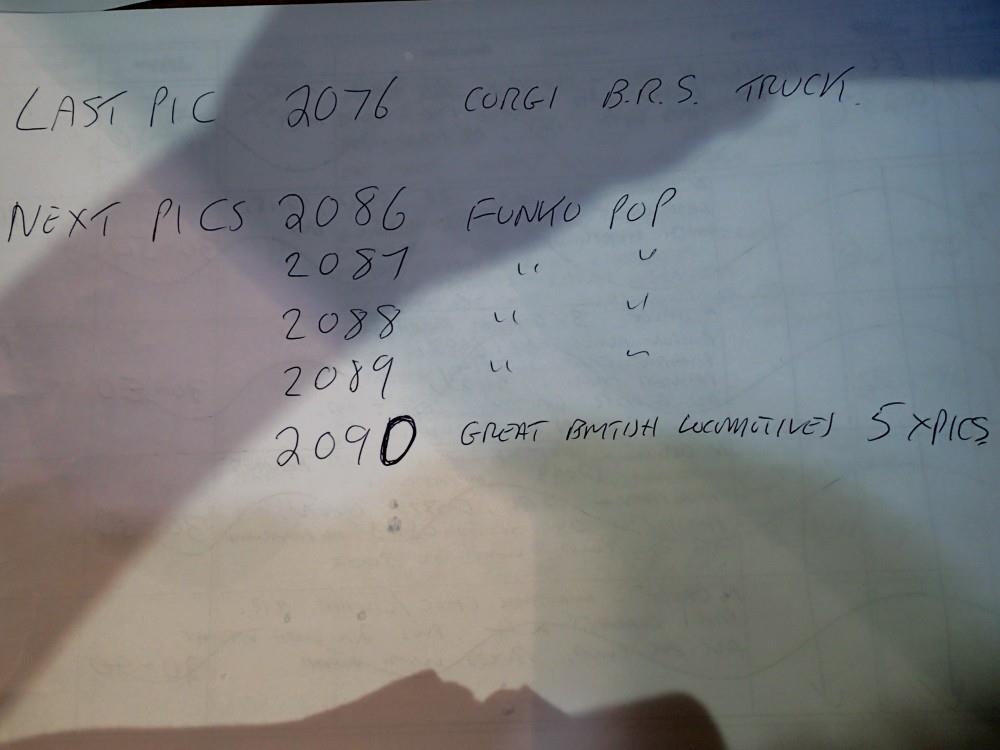 LAST PIC 2076 CORGI B.R.S. TRUCK.
NEXT PICS 2086 FUNKO POP
2087 " "
2088 " "
2089 " "
2090 GREAT BRITISH LOCOMOTIVES 5 XPICS